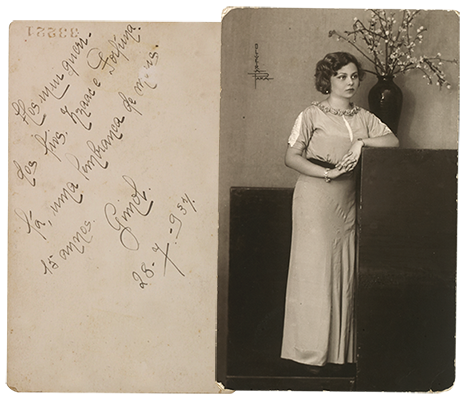 33221
Aos meus queri-
dos tios, Franc e Fortuna
lá, uma lembrança de meus
15 annos.
Gimol.
28-7-937